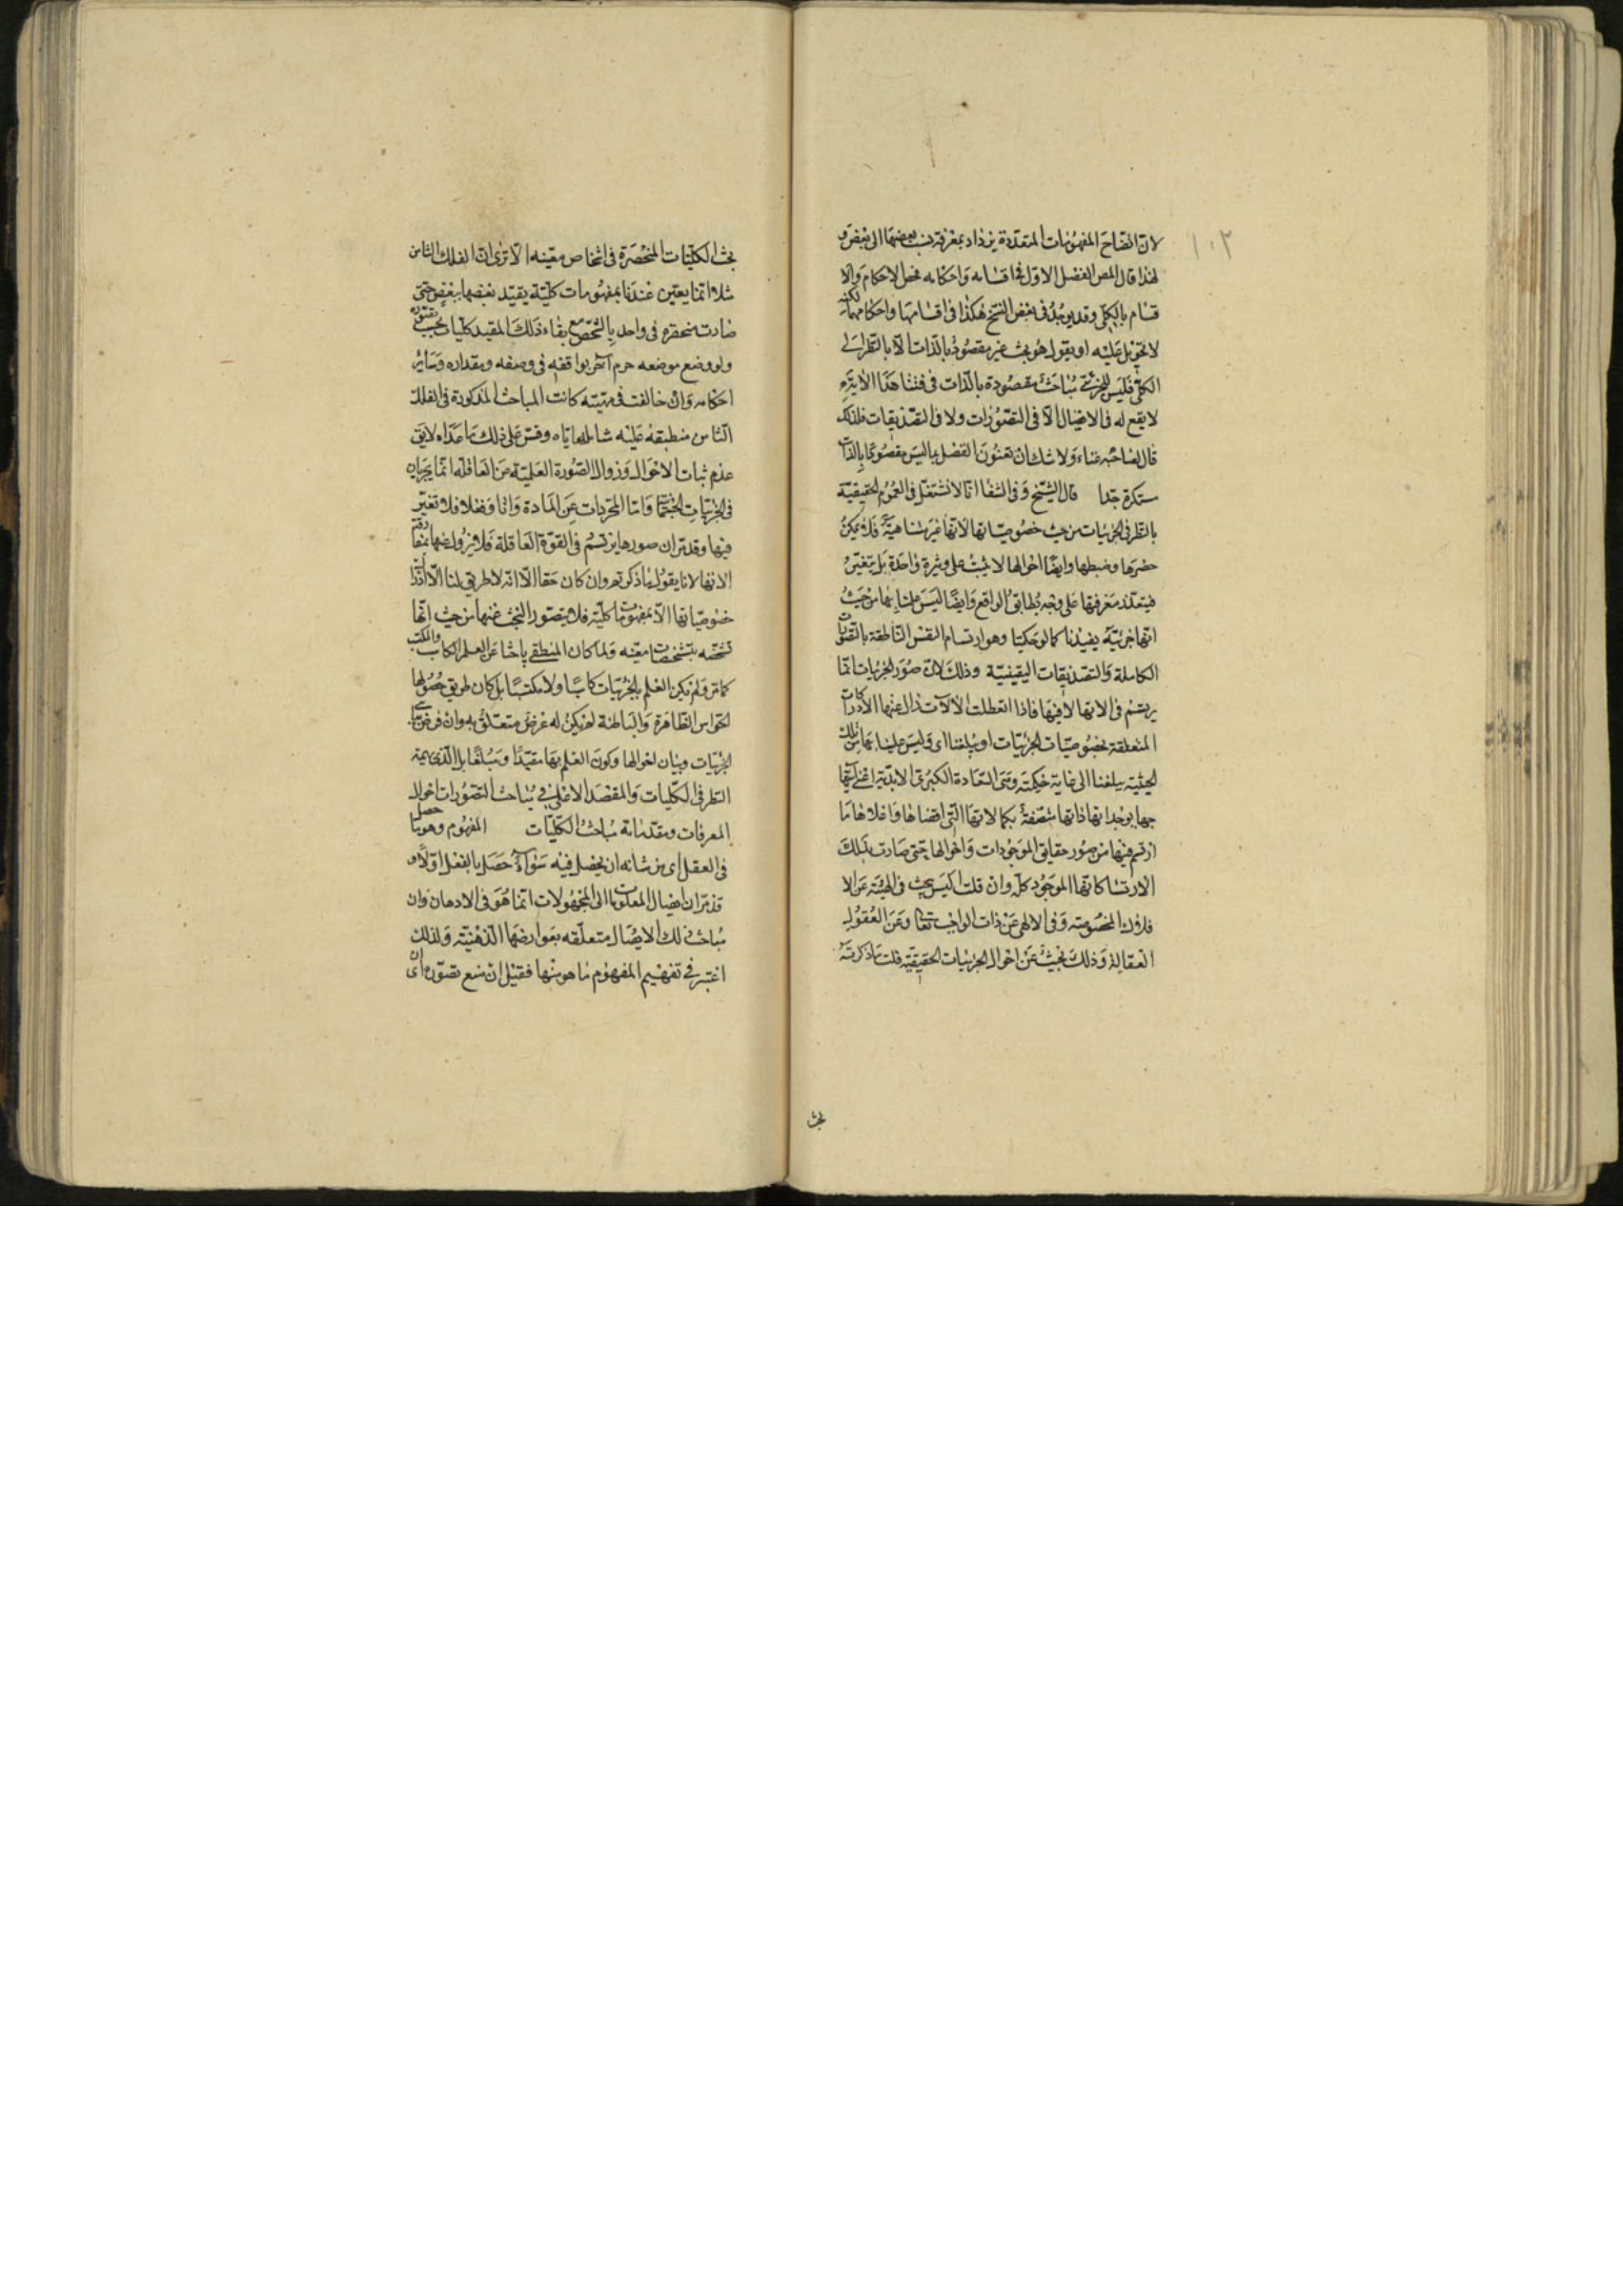 ١٠٢
لان اتضاح المفهومات المتعددة يزداد بمعرفة نسب بعضها الى بعض و
لهذا قال المص الفصل الاول في اقسامه واحكامه فخص الاحكام والا
قسام بالكلي وقد يوجد في بعض النسخ هكذا في اقسامها واحكامها لكنه
لا تعويل عليه او يقول هو بحث غير مقصود بالذات الا بالنظر الى
الكلي فليس للجزئي مباحث مقصودة بالذات في فننا هذا الا يرى
لا يقع له في الايصال الا في التصورات ولا في التصديقات فلذلك
قال لصاحبه غناء ولا شك ان تعنون الفصل بما ليس مقصودا بالذات
مستكره جدا قال الشيخ وفي الشفا انا لا نشتغل في العموم الحقيقية
بالنظر في الجزئيات من حيث خصوصياتها لانها غير متناهية فلا يمكن
حصرها وضبطها وايضا احوالها لا يثبت على وتيرة واحدة بل يتغير
فيتعذر معرفتها على وجه يطابق الواقع وايضا ليس علمنا بها من حيث
انها جزئية يفيدنا كمالا حكميا وهو ارتسام النفس الناطقة بالتصورات
الكاملة والتصديقات اليقينية وذلك لان صور الجزئيات انما
يرتسم في الاتها لا فيها فاذا انعطلت الالات زال عنها الادراكات
المتعلقة بخصوصيات الجزئيات او يبلغنا اي وليس علمنا بها من تلك
الحيثية يبلغنا الى غاية حكمته وهي السعادة الكبرى الابدية اعني ابتها
جها بوجدانها ذاتها متصفة بكمالاتها التي افضلها واعلاها ما
ارتسم فيها من صور حقايق الموجودات واحوالها حتى صارت بذلك
الارتسام كانها الموجود كله وان قلت اليس يبحث في الهيئة عن الا
فلاك المخصوصة وفي الالهي عن ذات الواجب تعالى وعن العقول
الفعالة وذلك بحث عن احوال الجزئيات الحقيقية قلت ما ذكرته
بحث
بحث الكليات المنحصرة في اشخاص معينه الا ترى ان الفلك الثامن
مثلا انما يعتبر عندنا بمفهومات كلية يقيد بعضها ببعض حتى
صارت منحصره في واحد بالشخص مع بقاء ذلك المقيد كليا بحسب تصوره
ولو وضع موضعه جرم آخر يوافقه في وصفه ومقداره وسائر
احكامه وان خالفت في مهيته كانت المباحث المذكورة في الفلك
الثامن منطبقة عليه شاملة اياه وقس على ذلك ما عداه لا يق
عدم ثبات الاحوال وزوال الصورة العلمية عن العاقلة انما يجريان
في الجزئيات الجسمية واما المجردات عن المادة ذاتا وفعلا فلا تغير
فيها وقد مر ان صورها يرتسم في القوة العاقلة فلا يزول عنها بمفارقة
الاتها لانا يقول ما ذكرتم وان كان حقا الا انه لا طريق لنا الا ادراك
خصوصياتها الا بمفهومات كلية فلا يتصور البحث عنها من حيث انها
تشخصه بتشخصات معينه ولما كان المنطقي باحثا عن العلم الكاسب والمكتسب
كما مر ولم يكن العلم بالجزئيات كاسبا ولا مكتسبا بل كان طريق حصولها
الحواس الظاهرة والباطنة لم يكن له غرض متعلق به وان فرض
الجزئيات وبيان احوالها وكون العلم بها مقيدا ومبلغا بل الذي يهمه
النظر في الكليات والمقصد الاعلى في مباحث التصورات احوال
المعرفات ومقدماته مباحث الكليات المفهوم وهو ما حصل
في العقل اي من شانه ان يحصل فيه سواء حصل بالفعل او لا و
قد مر ان ايصال المعلومات الى المجهولات انما هو في الاذهان وان
مباحث ذلك الايصال متعلقه بعوارضها الذهنية ولذلك
اعتبر في تقسيم المفهوم ما هو منها فقيل ان منع تصوره اي